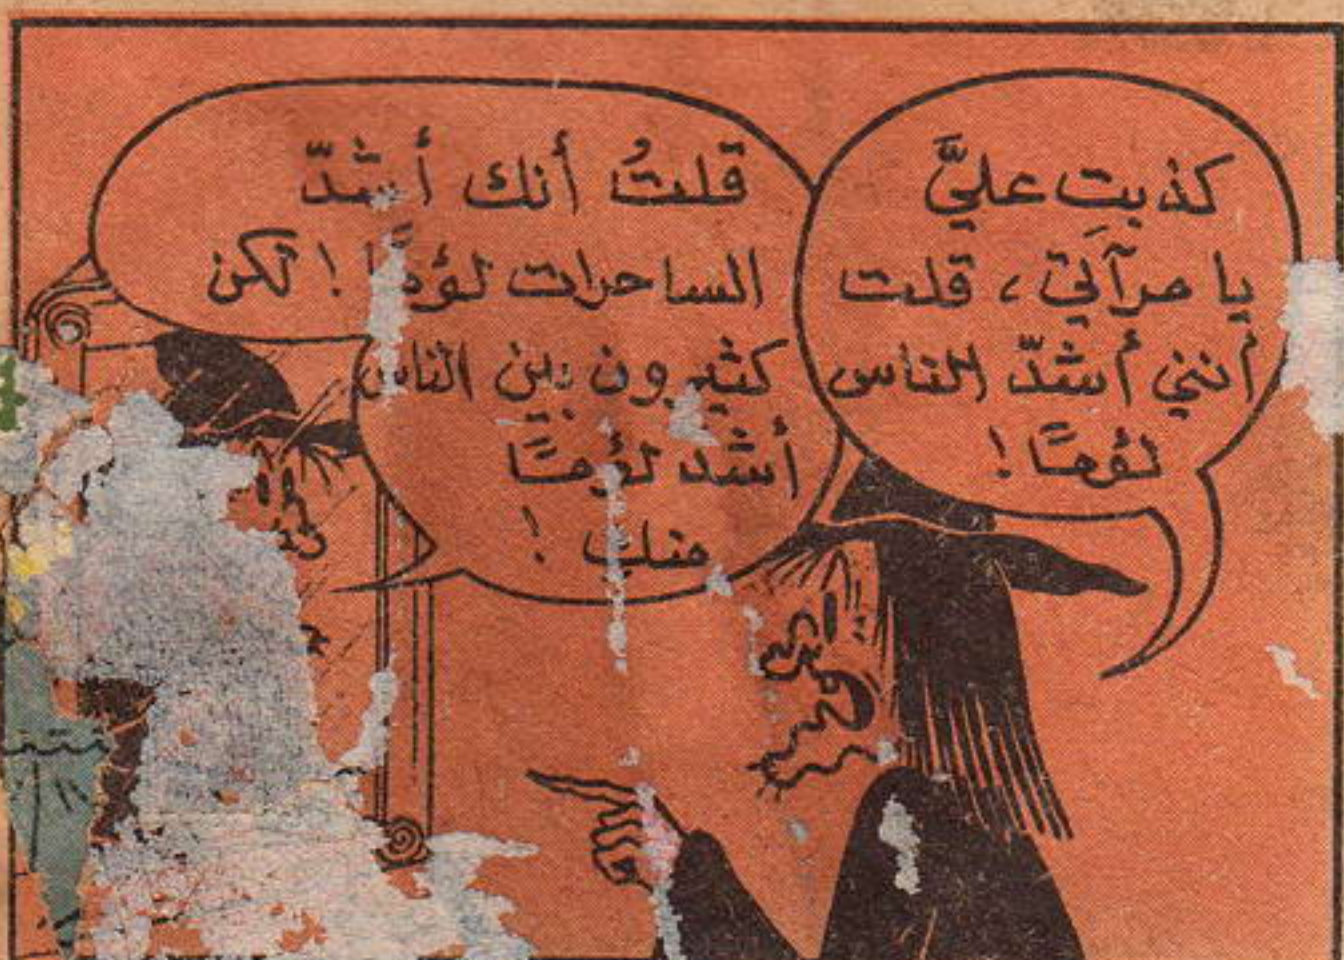 كذبتِ عليَّ
يا مرآتي، قلت
أنني أشدّ الناس
لؤمًا!
قلتُ أنك أشدّ
الساحرات لؤمًا! لكن
كثيرون بين الناس
أشد لؤمًا
منك!